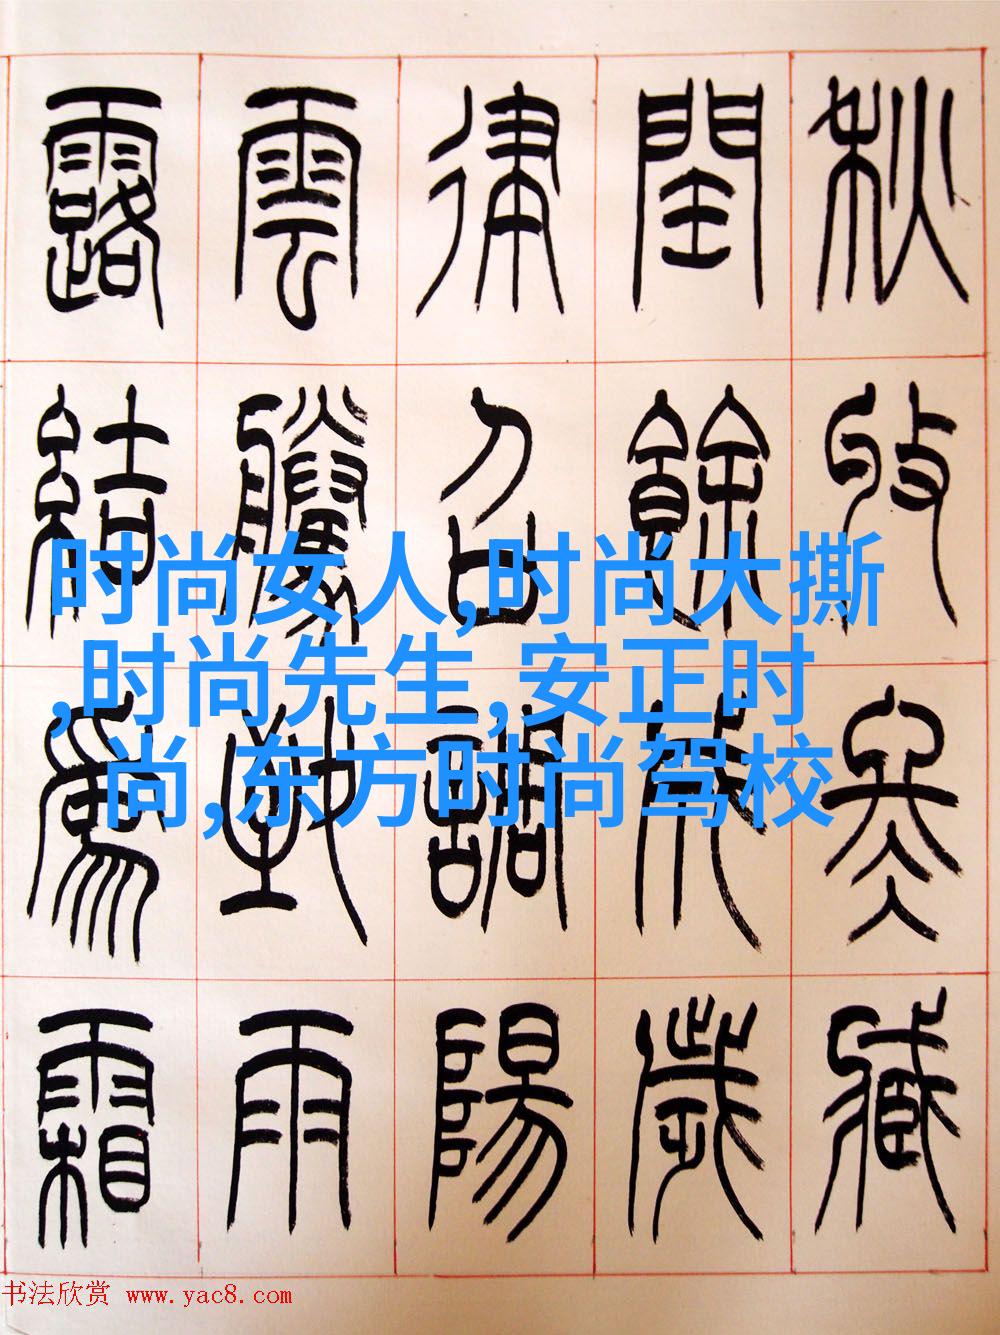 秋收冬臧
閏餘成歲
律召調陽
雲騰致雨
露結爲霜
时尚女人,时尚大撕
,时尚先生,安正时
尚,东方时尚驾校
书法欣赏 www.yac8.com